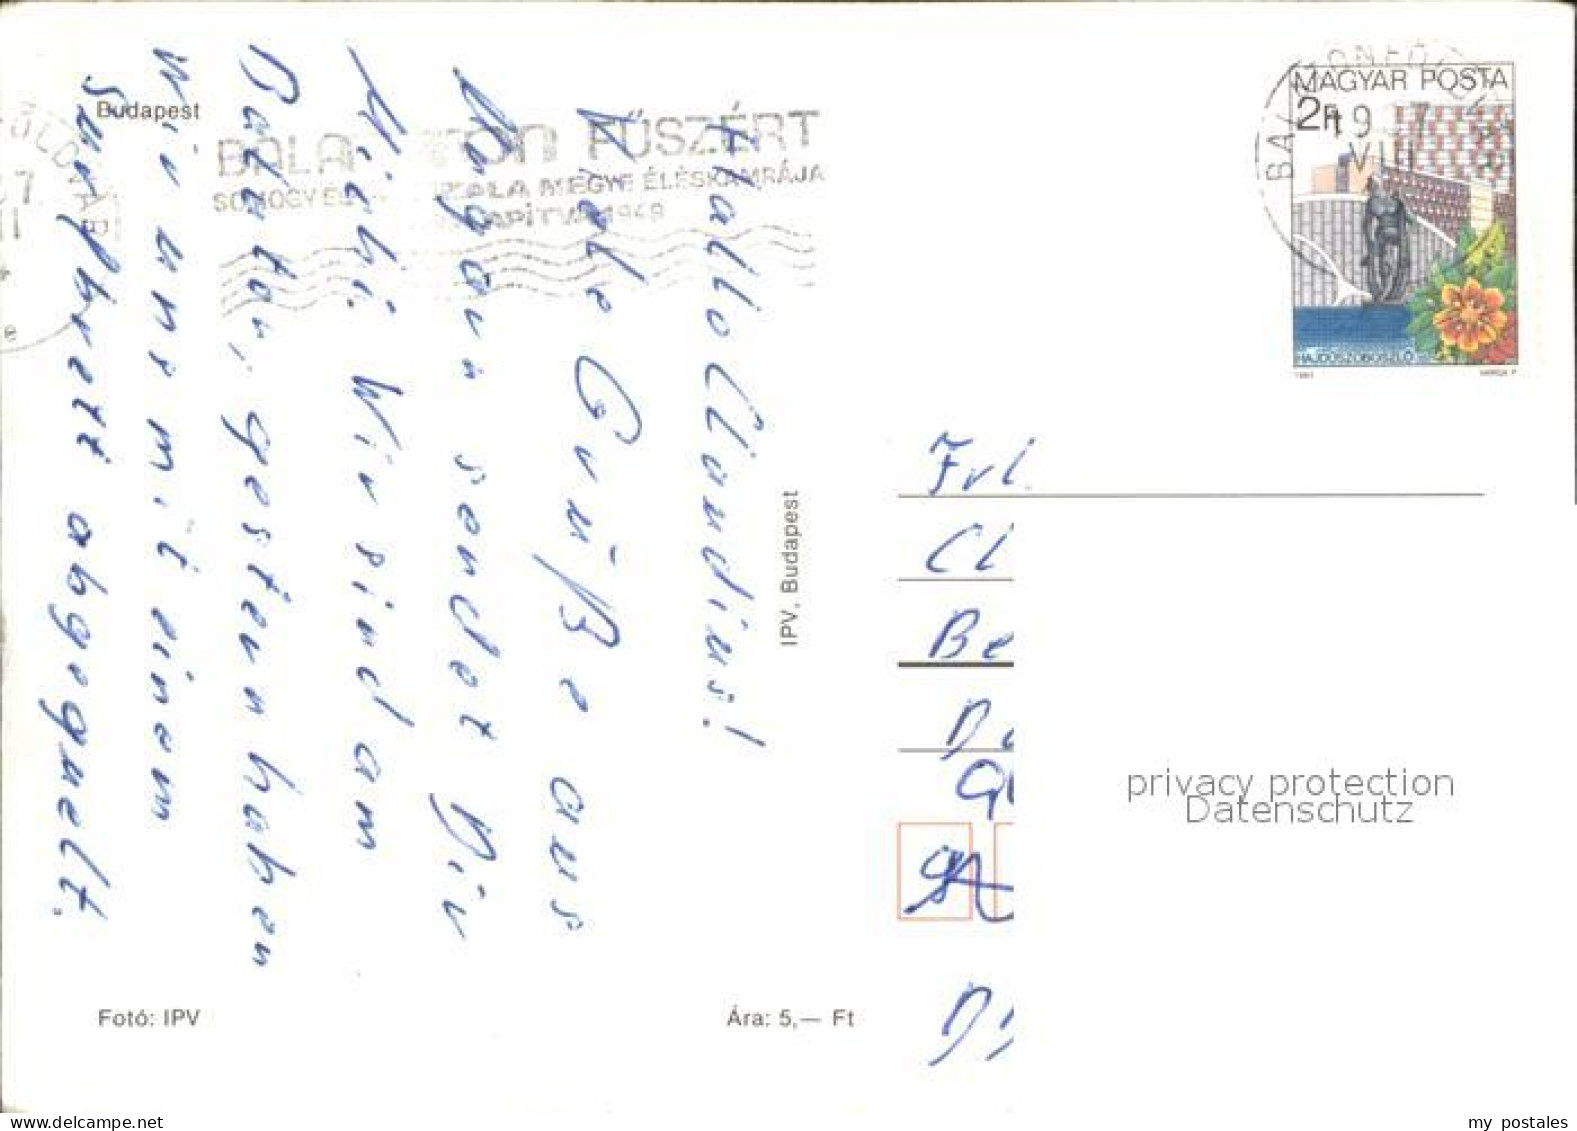 Budapest
BALATON FŰSZÉRT
SOMOGY ÉS ZALA MEGYE ÉLÉSKAMRÁJA
ALAPÍTVA 1949
MAGYAR POSTA
2Ft
HAJDÚSZOBOSZLÓ
Hallo Claudius!
Liebe Grüße aus
Ungarn sendet Dir
Michi. Wir sind am
Balaton, gestern haben
wir uns mit einem
Surfbrett abgequält.
IPV, Budapest
Frl.
Cl
Be
privacy protection
Datenschutz
Fotó: IPV
Ára: 5,— Ft
my postales
www.delcampe.net